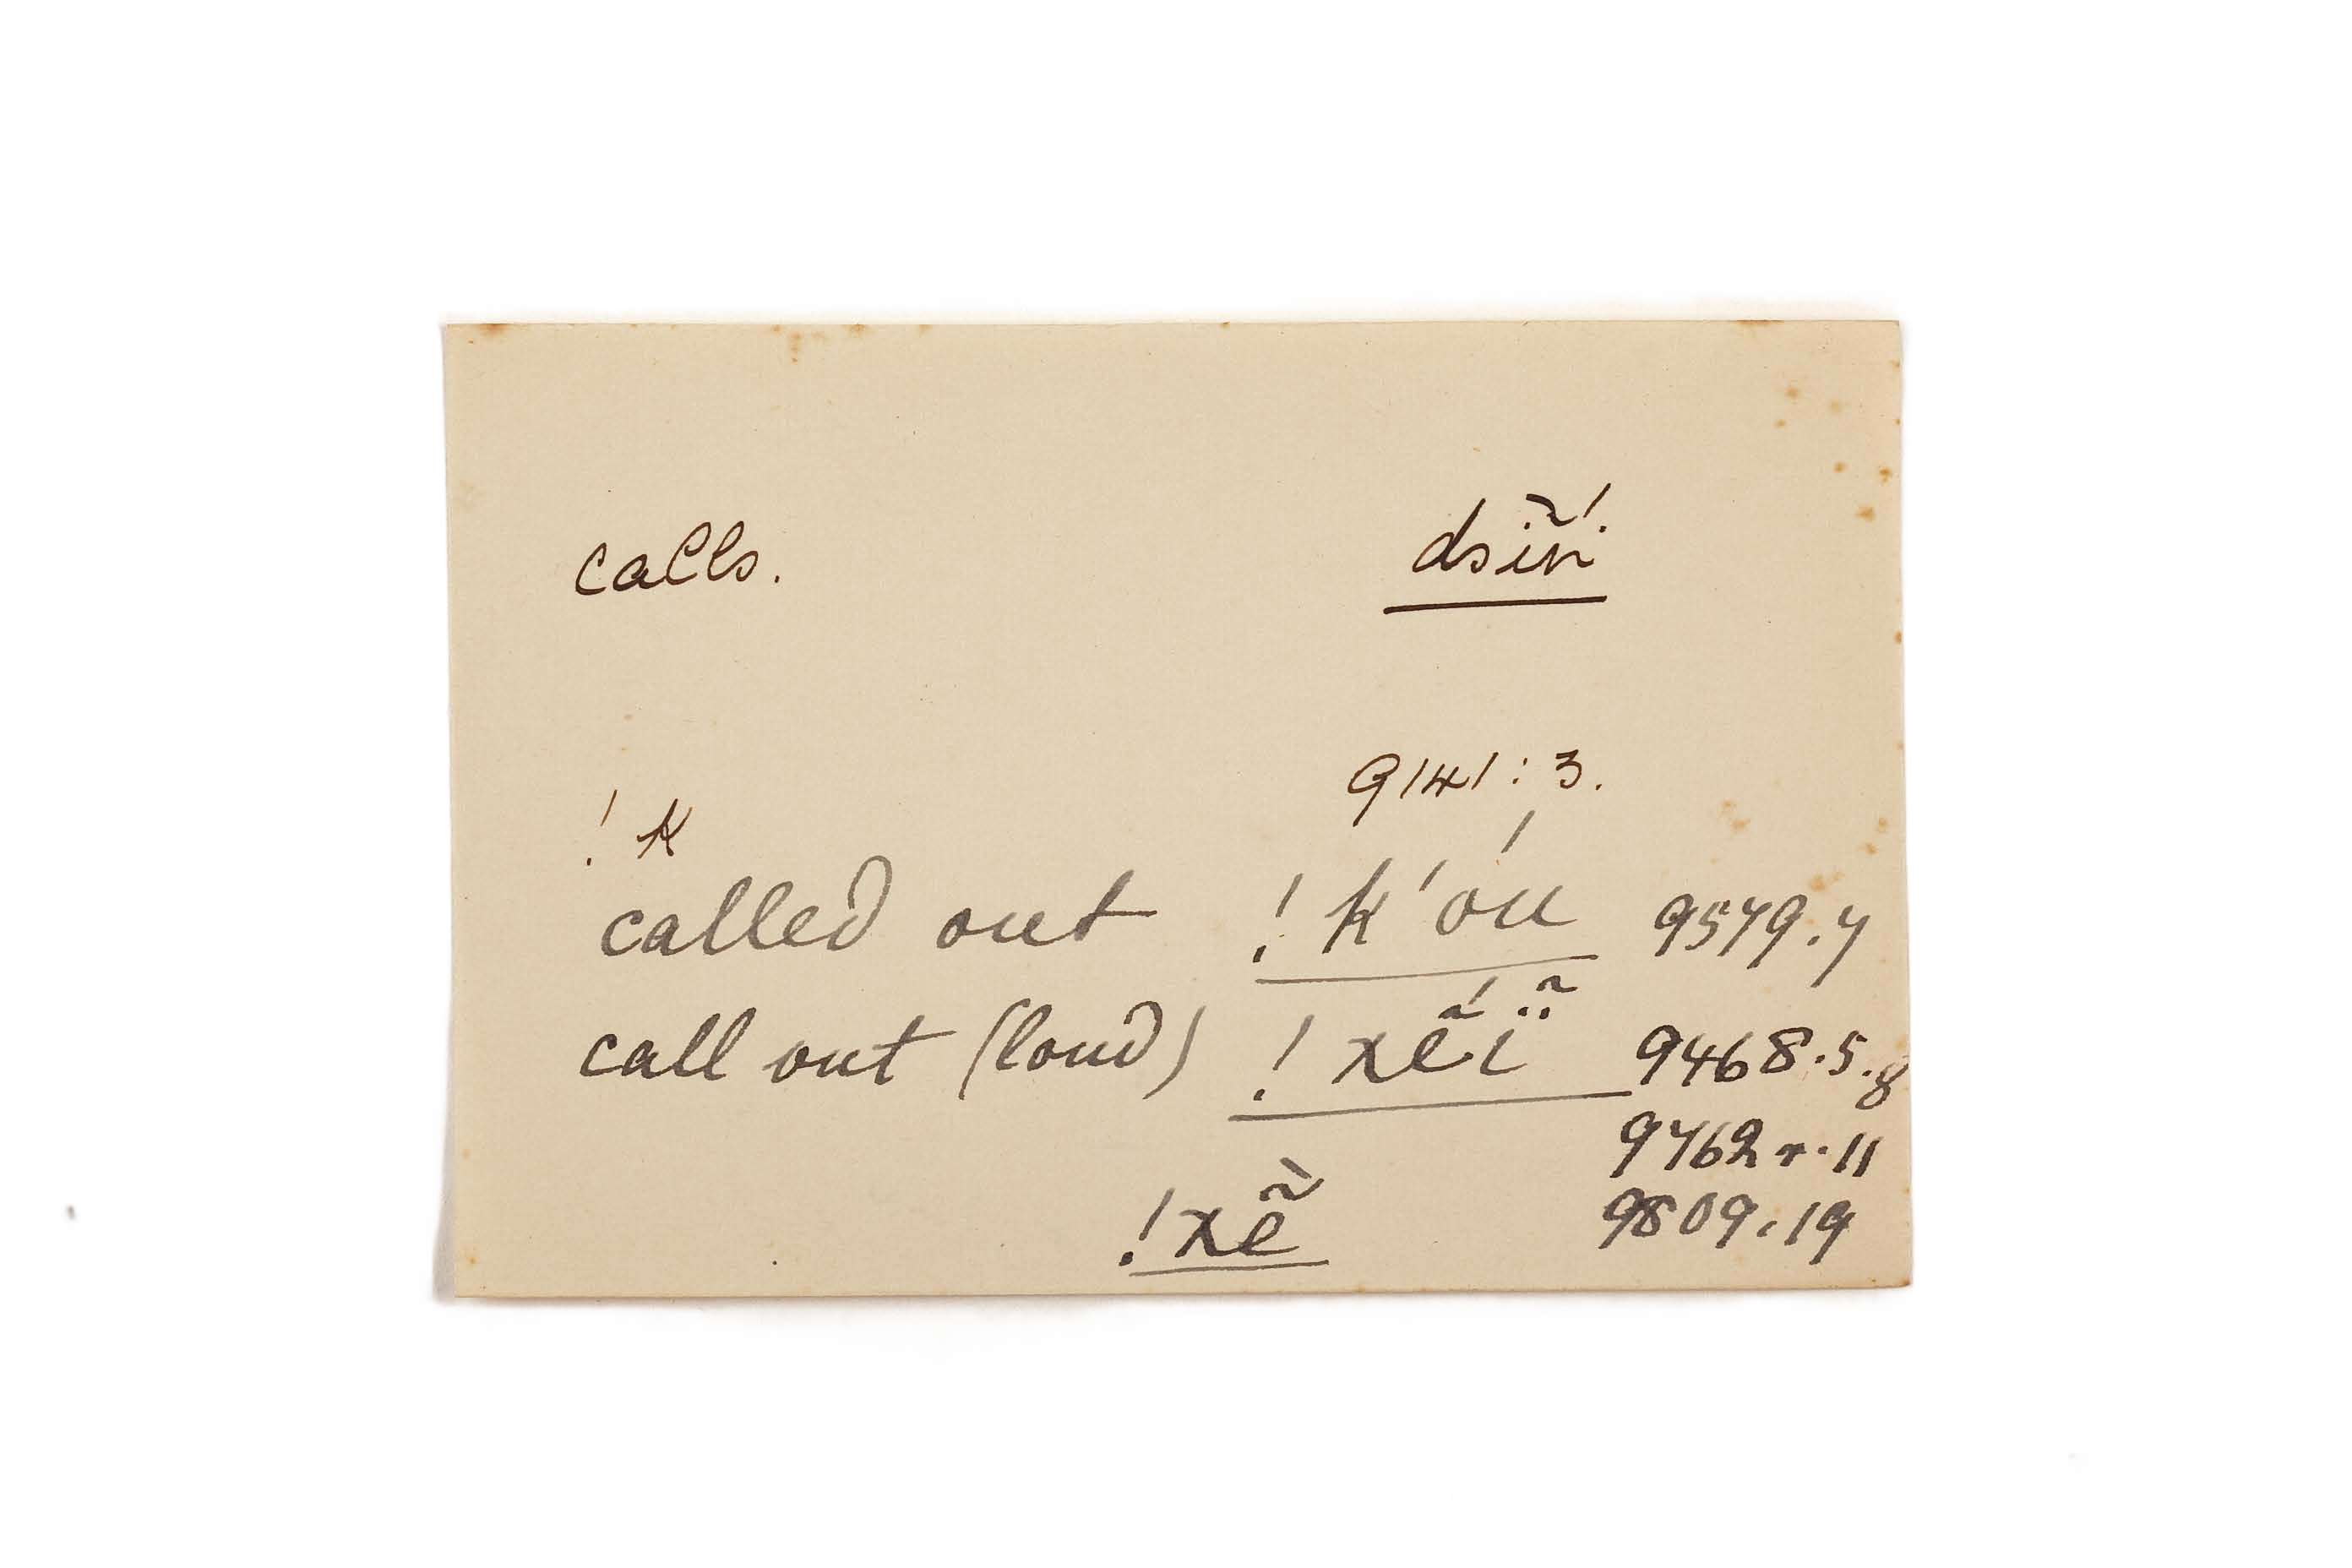 calls. dsĩń
9141 : 3.
! k
called out !k'óú 9579.7
call out (loud) !xẽ́ï̃ 9468.5.8
9762 r. 11
!xẽ̀ 9809.19